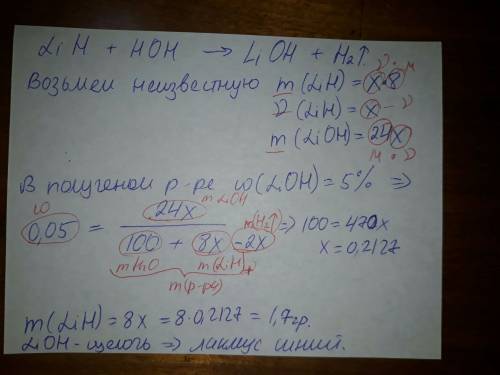 LiH + HOH → LiOH + H₂↑.
ν · M
Возьмем неизвестную m(LiH) = x·8
ν(LiH) = x – ν
m(LiOH) = 24x
M · ν
В полученом р-ре ω(LiOH) = 5% ⇒
ω m LiOH
0,05 = 24x / (100 + 8x – 2x) m(H₂↑) ⇒ 100 = 470x
m H₂O m(LiH) x = 0,2127
m(р-ра)
m(LiH) = 8x = 8·0,2127 = 1,7гр.
LiOH – щелочь ⇒ лакмус синий.